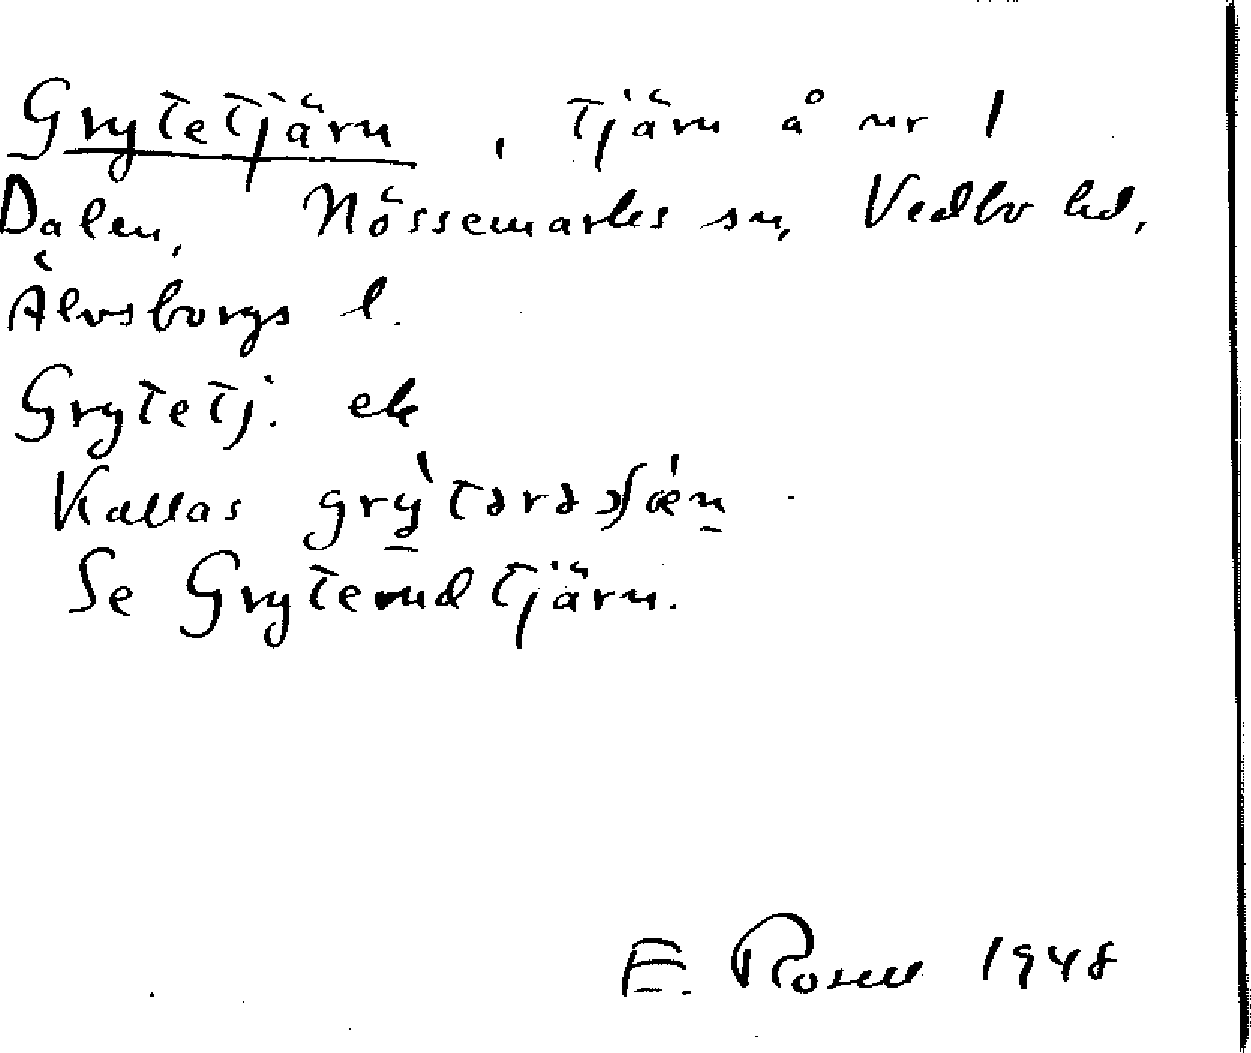 Grytetjärn, tjärn å nr 1
Dalen, Nössemarks sn, Vedbo hd,
Älvsborgs l.
Grytetj. ek
Kallas
Se Gryterudtjärn.
E. Rosell 1948